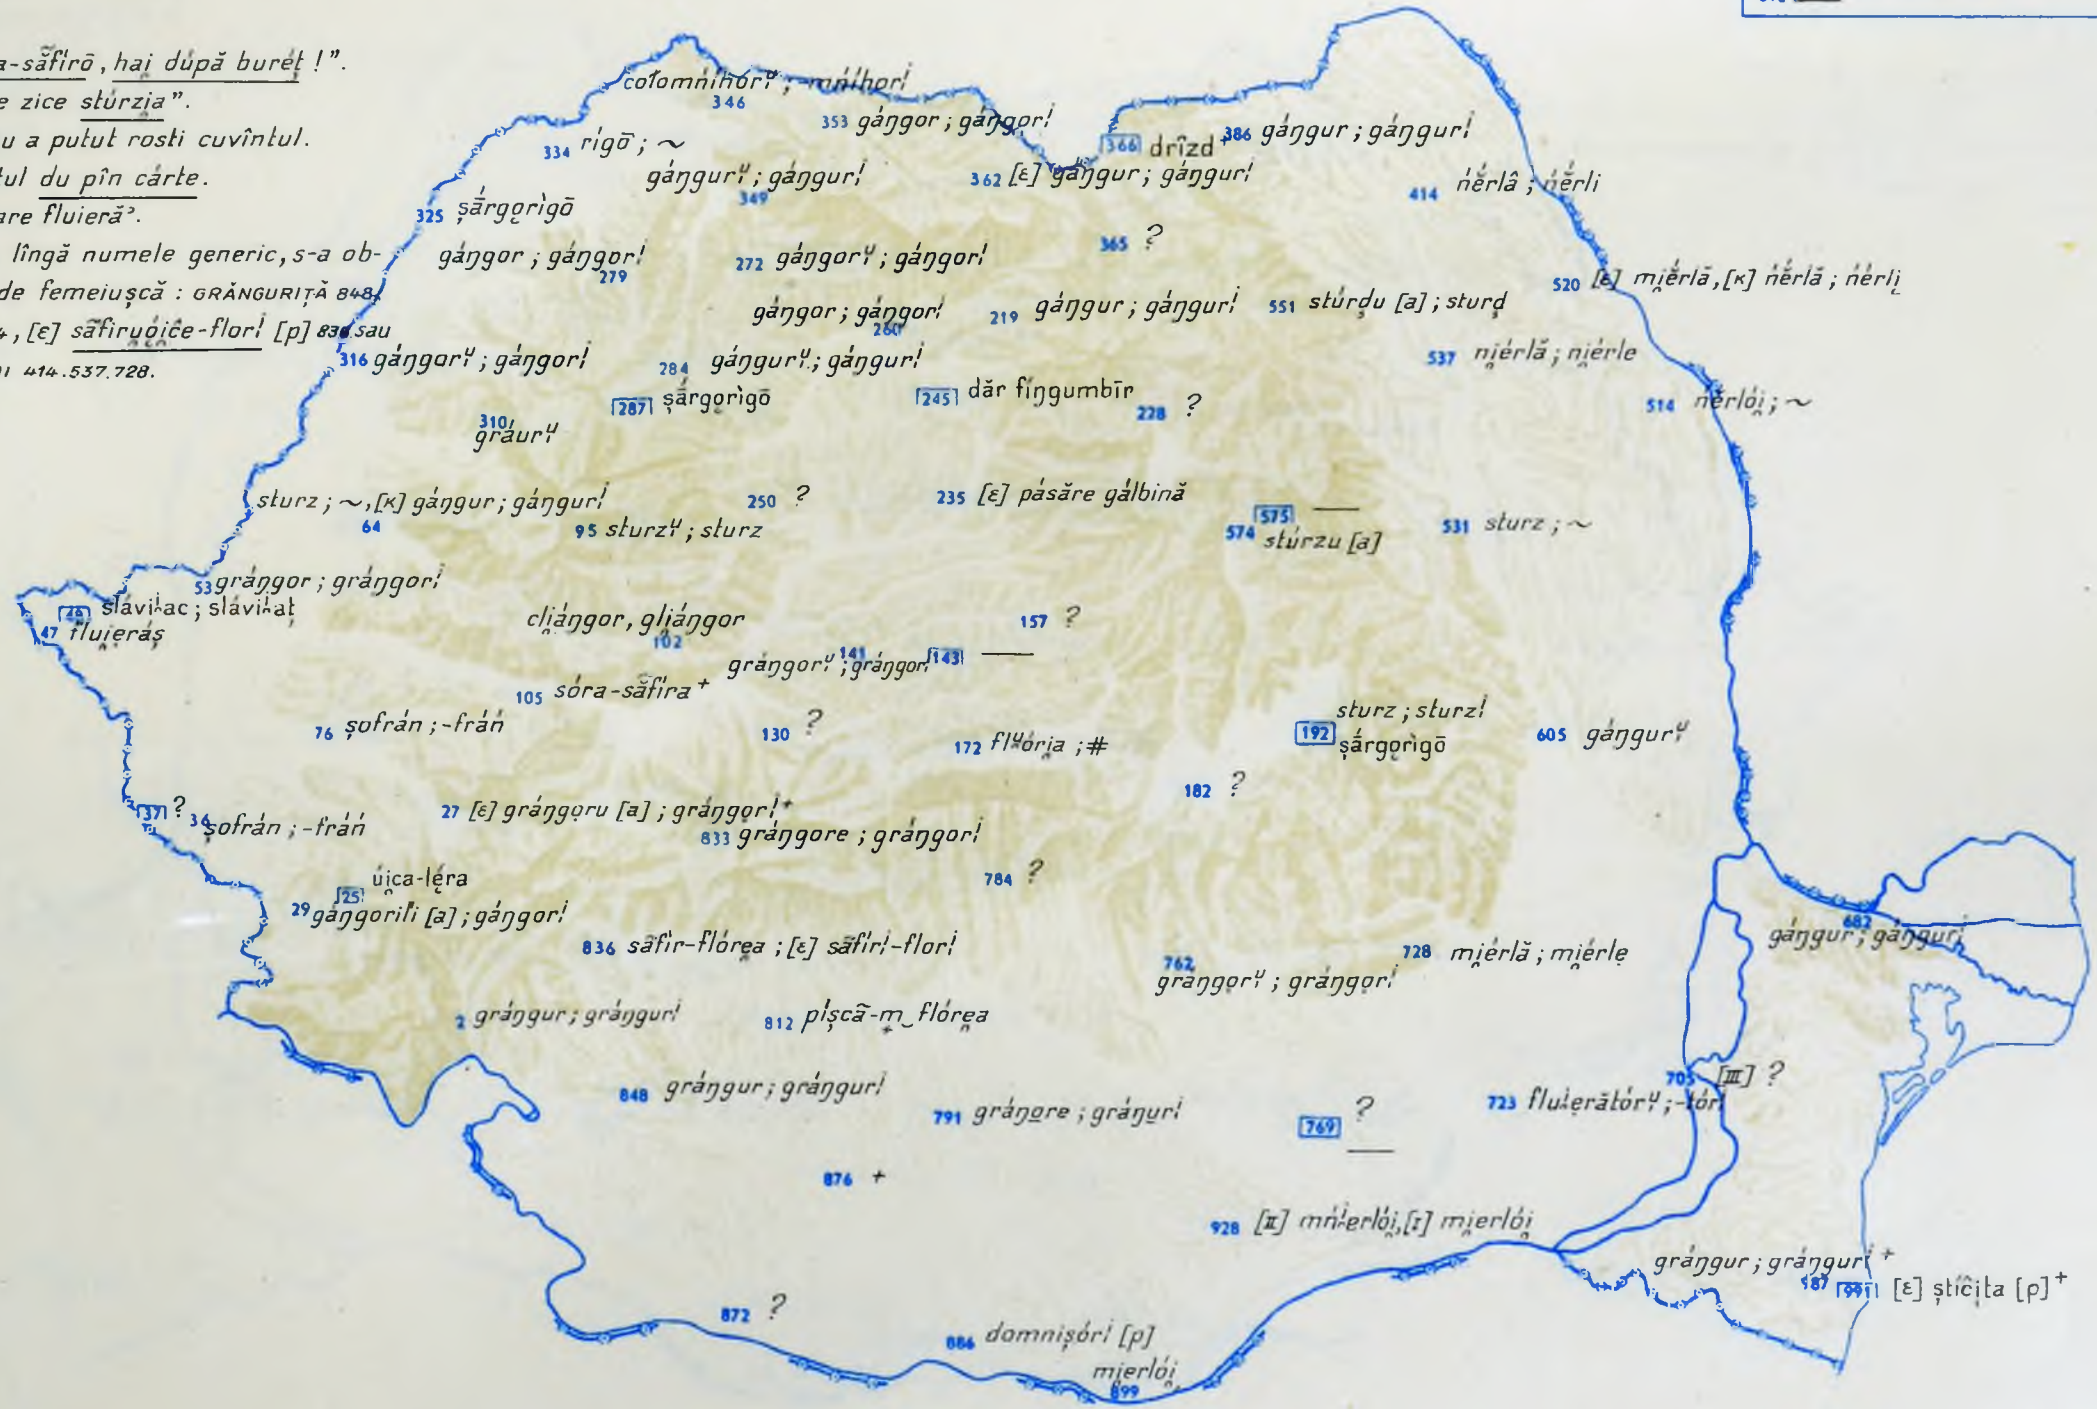 -sãfirō, hai̯ dúpă buréț !".
e zice stúrzi̯a".
u a putut rosti cuvîntul.
tul du pîn cárte.
are fluieră'.
lîngă numele generic, s-a ob-
de femeiușcă : GRĂNGURIȚĂ 848,
[ε] sãfiru̯ói̯ĉe-florⁱ [p] 836 sau
414.537.728.
346 cołomníhorᶸ ; -mníhorⁱ
353 gáŋgor ; gáŋgorⁱ
[366] drîzd⁺
386 gáŋgur ; gáŋgurⁱ
334 rígō ; ~
349 gáŋgurᶸ ; gáŋgurⁱ
362 [ε] gáŋgur ; gáŋgurⁱ
414 ńérlâ ; ńérli
325 șắrgo̯rìgō
279 gáŋgor ; gáŋgorⁱ
272 gáŋgorᶸ ; gáŋgorⁱ
365 ?
520 [ε] mi̯érlă, [κ] ńérlă ; ńérli̯
260 gáŋgor ; gáŋgorⁱ
219 gáŋgur ; gáŋgurⁱ
551 stúrd̦u [a] ; sturd̦
316 gáŋgorᶸ ; gáŋgorⁱ
284 gáŋgurᶸ ; gáŋgurⁱ
537 ni̯érlă ; ni̯érle
[287] șắrgo̯rìgō
[245] dăr fíŋgumbīr
228 ?
514 ńerlói̯ ; ~
310 gráurᶸ
64 sturz ; ~, [κ] gáŋgur ; gáŋgurⁱ
250 ?
235 [ε] pásăre gálbină
[575] —
95 sturzᶸ ; sturz
574 stúrzu [a]
531 sturz ; ~
53 gráŋgor ; gráŋgorⁱ
slávihac ; sláviháț
47 flui̯eráș
102 cli̯áŋgor, gli̯áŋgor
157 ?
141 gráŋgorᶸ ; gráŋgorⁱ
[143] —
105 sóra-săfíra⁺
76 șofrán ; -fráń
130 ?
172 flᶸóri̯a ; #
[192] sturz ; sturzⁱ
șắrgo̯rìgō
605 gáŋgurᶸ
182 ?
[37] ?
36 șofrán ; -fráń
27 [ε] gráŋgo̯ru [a] ; gráŋgo̯rⁱ⁺
833 gráŋgore ; gráŋgorⁱ
784 ?
[25] úi̯ca-lę́ra
29 gáŋgorili [a] ; gáŋgorⁱ
836 sãfir-flóre̯a ; [ε] sãfirⁱ-florⁱ
762 grángo̯rᶸ ; gráŋgo̯rⁱ
728 mi̯érlă ; mi̯érlę
682 gáŋgur ; gáŋgurⁱ
2 gráŋgur ; gráŋgurⁱ
812 píșcă-m‿flóre̯a
848 gráŋgur ; gráŋgurⁱ
791 gráŋore ; gráŋurⁱ
[769] ?
—
705 [III] ?
723 flui̯erătórᶸ ; -tórⁱ
876 +
928 [II] mńi̯erlói̯, [I] mi̯erlói̯
987 gráŋgur ; gráŋgurⁱ⁺
[991] [ε] știĉíta [p]⁺
872 ?
886 domnișórⁱ [p]
899 mi̯erlói̯